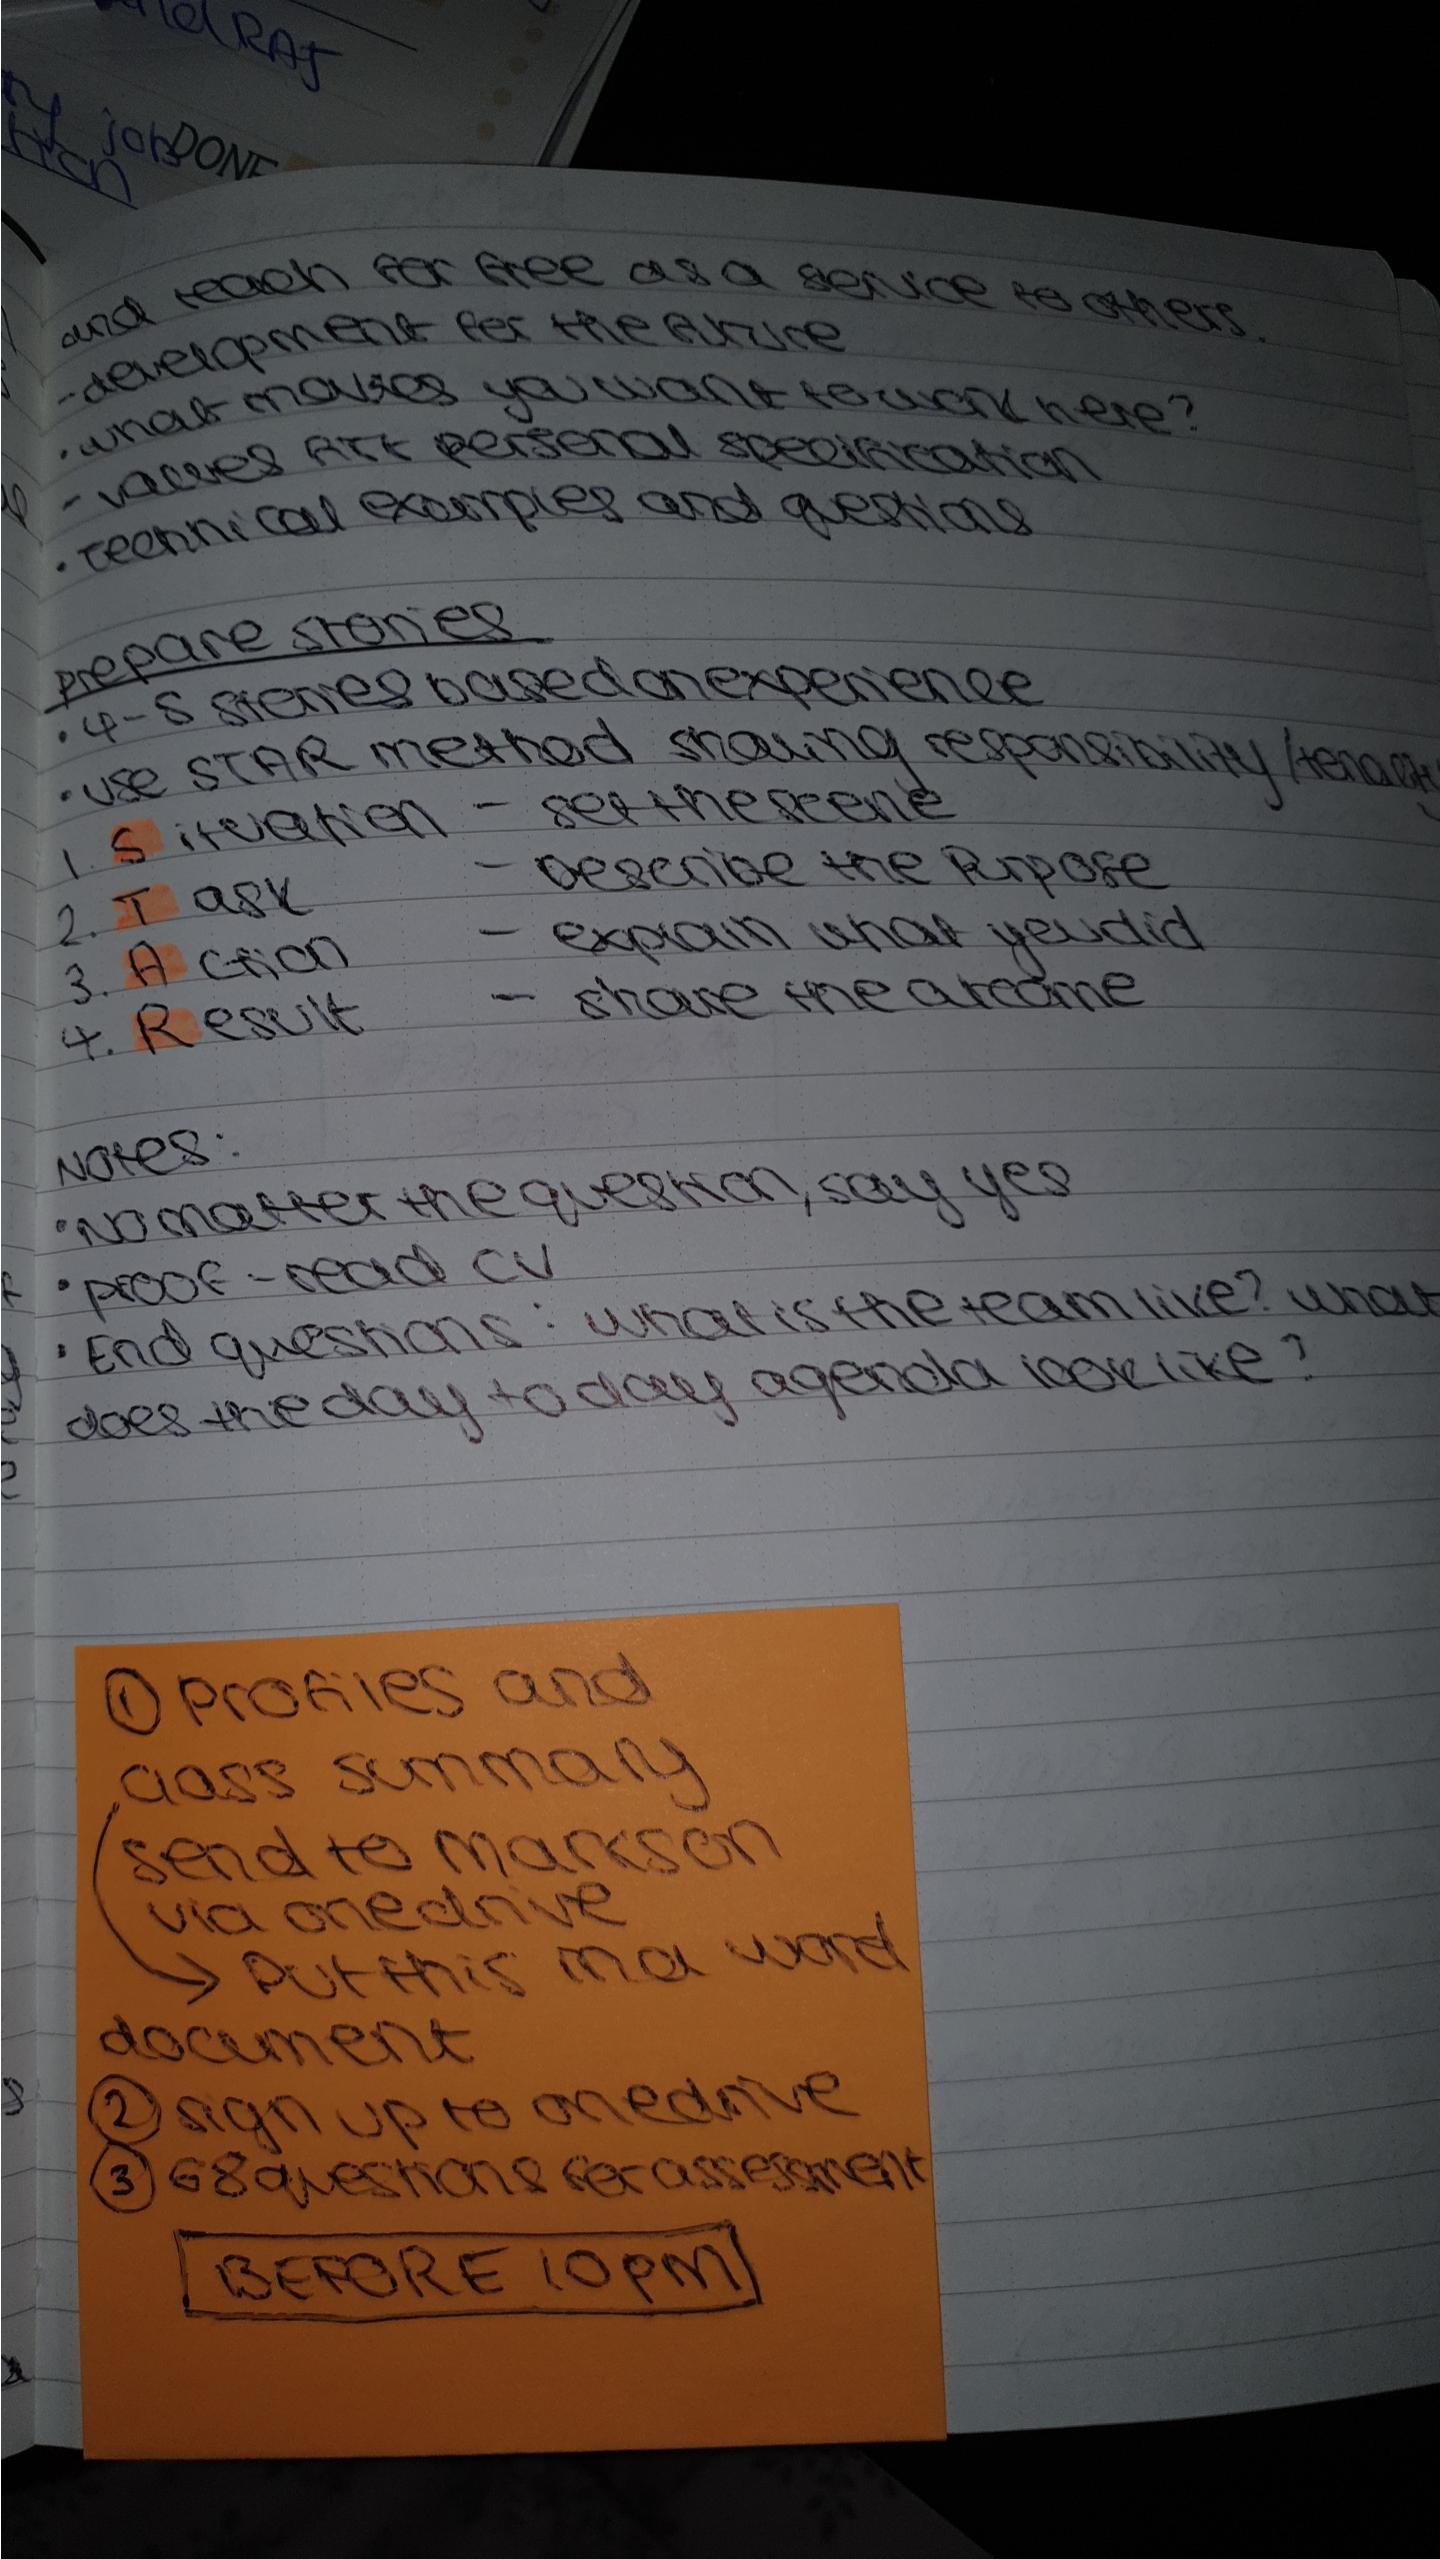 RAJ
job DONE
and teach for free as a service to others.
- development for the future
• what makes you want to work here?
- values personal specification
• Technical examples and questions
prepare stories
• 4-5 stories based on experience
• use STAR method showing responsibility /tenacity
1. Situation - set the scene
2. Task - Describe the Purpose
3. Action - explain what you did
4. Result - share the outcome
Notes:
• No matter the question, say yes
• proof-read CV
• End questions: what is the team like? what
does the day to day agenda look like?
① Profiles and
class summary
send to Markson
via onedrive
→ Put this in a word
document
② sign up to onedrive
③ 68 questions for assessment
BEFORE 10PM